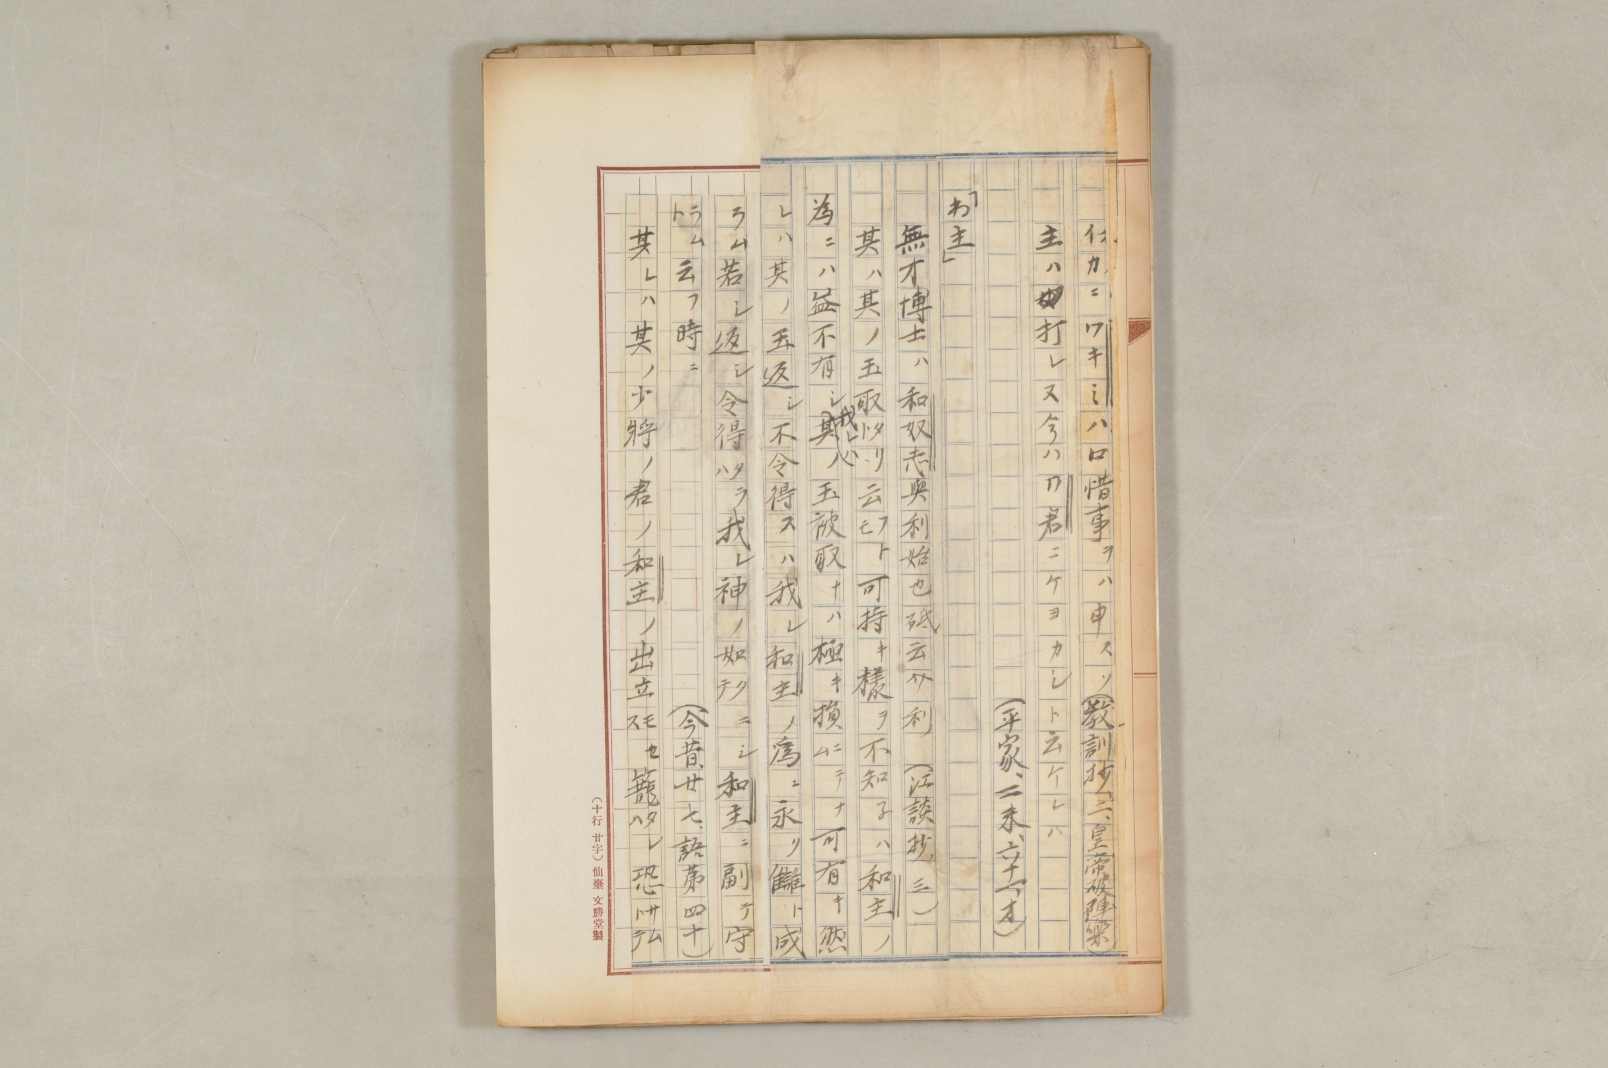 イカニワキミハ口惜事ヲハ申スソ(教訓抄、二、皇帝破陣楽)
主ハ打レヌ今ハワ君ニケヨカシト云ケレハ
(平家、二末、六十一オ)
「わ主」
無才博士ハ和奴志与利始也砥云介利(江談抄、三)
其ハ其ノ玉取タリト云フトモ可持キ様ヲ不知子ハ和主ノ
為ニハ益不有シ我レハ其ノ玉被取ナハ極キ損ニテナム可有キ然
レハ其ノ玉返シ不令得スハ我レ和主ノ為ニ永ク讎ト成
ラム若シ返シ令得タラハ我レ神ノ如クニシテ和主ニ副テ守
ラムト云フ時ニ(今昔、廿七、語第四十)
其レハ其ノ少将ノ君ノ和主ノ出立モセス籠タレハ恐サムトテ
(十行 廿字) 仙台 文勝堂製